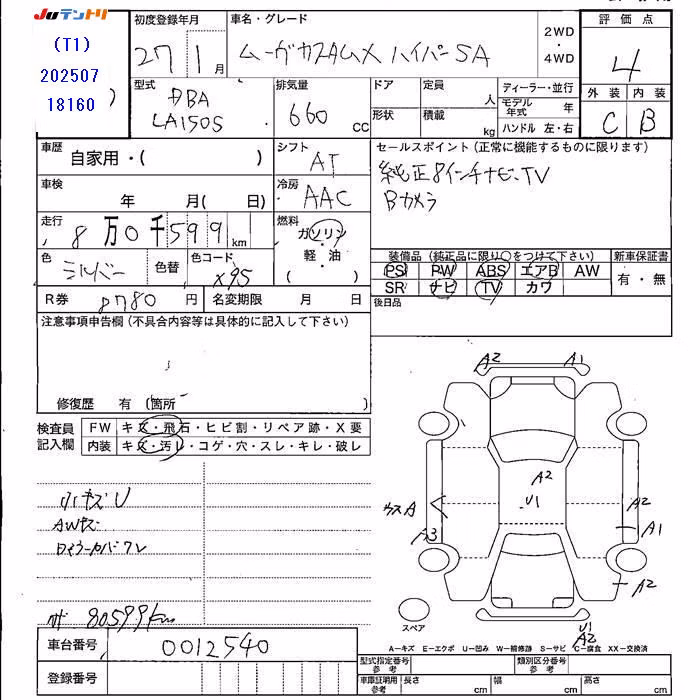 Juテントリ
(T1)
202507
18160
初度登録年月
27年 1月
車名・グレード
ムーヴカスタムX ハイパーSA
2WD
・
4WD
評価点
4
外装 内装
C B
型式
DBA
LA150S
排気量
660 cc
ドア
形状
定員 人
積載 kg
ディーラー・並行
モデル年式 年
ハンドル 左・右
車歴
自家用・( )
シフト
AT
車検
年 月( 日)
冷房
AAC
セールスポイント(正常に機能するものに限ります)
純正8インチナビ・TV
Bカメラ
走行
8万0千599 km
燃料
ガソリン
・
軽油
( )
色
シルバー
色替
色コード
X95
装備品(純正品に限り○をつけて下さい)
新車保証書
PS PW ABS エアB AW
SR ナビ TV カワ
有・無
R券 8780 円
名変期限 月 日
後日品
注意事項申告欄(不具合内容等は具体的に記入して下さい)
修復歴 有(箇所 )
検査員
記入欄
FW キズ・飛石・ヒビ割・リペア跡・X要
内装 キズ・汚レ・コゲ・穴・スレ・キレ・破レ
小キズU
AWキズ
80599km
A2 A1
A2
U1
A A2
A3 A1
A2
スペア
U1
A2
A−キズ E−エクボ U−凹み W−補修跡 S−サビ C−腐食 XX−交換済
車台番号
0012540
登録番号
型式指定番号
参考
類別区分番号
参考
車庫証明用
参考
長さ cm
幅 cm
高さ cm